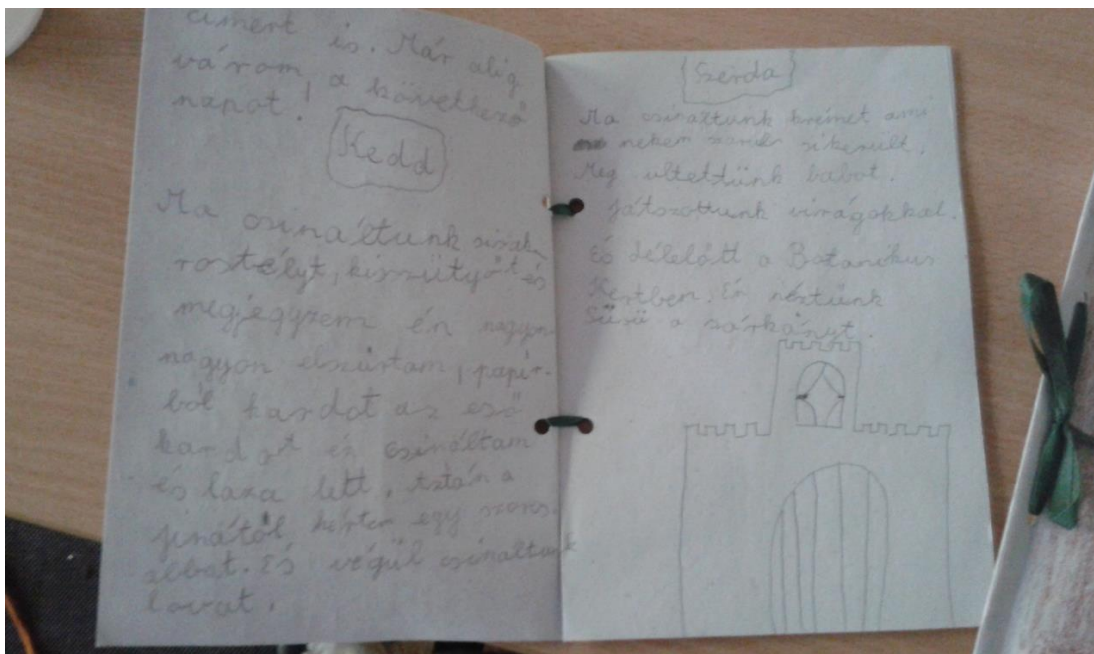 címert is. Már alig
várom, a következő
napot!
Kedd
Ma csináltunk sisak
rostélyt, kesztyűt és
megjegyzem én nagyon-
nagyon elszúrtam, papír-
ból kardot az eső
kardot én csináltam
és laza lett, aztán a
kértem egy
És végül csináltunk
lovat.
Szerda
Ma csináltunk krémet ami
nekem sikerült.
Meg ultettünk babot.
játszottunk virágokkal.
És délelőtt a Botanikus
Kertben, És néztünk
Süsü a sárkányt.